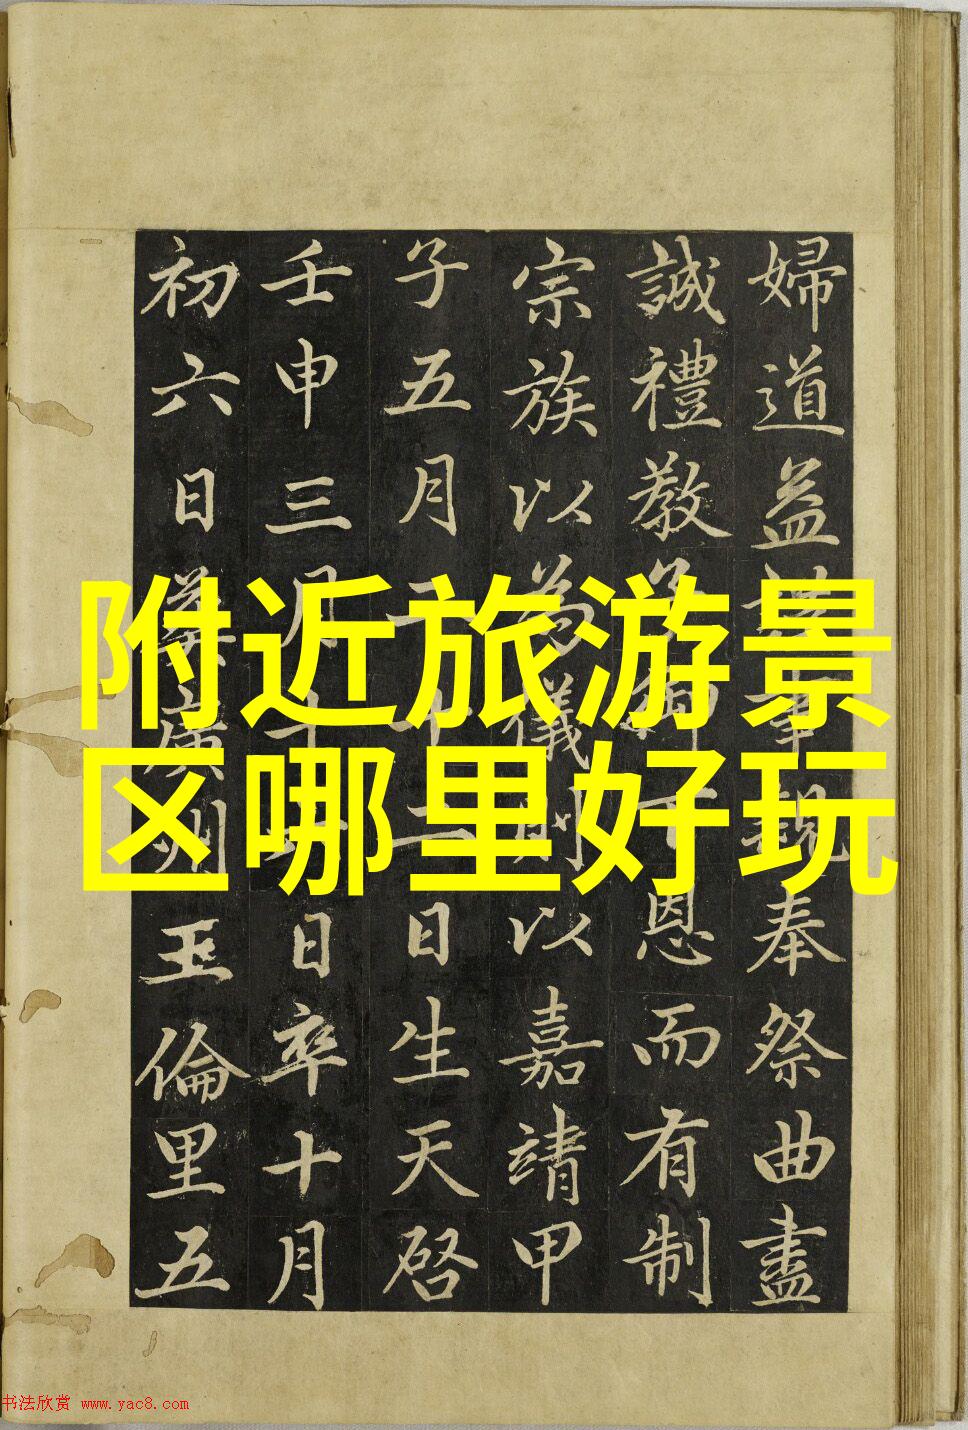 附近旅游景
区哪里好玩
婦道益
奉祭曲盡
誠禮教
恩而有制
宗族以為儀則以嘉靖甲
子五月二十二日生天啓
壬申三月十
日卒十月
初六日葬廣州
五倫里五
书法欣赏 www.yac8.com